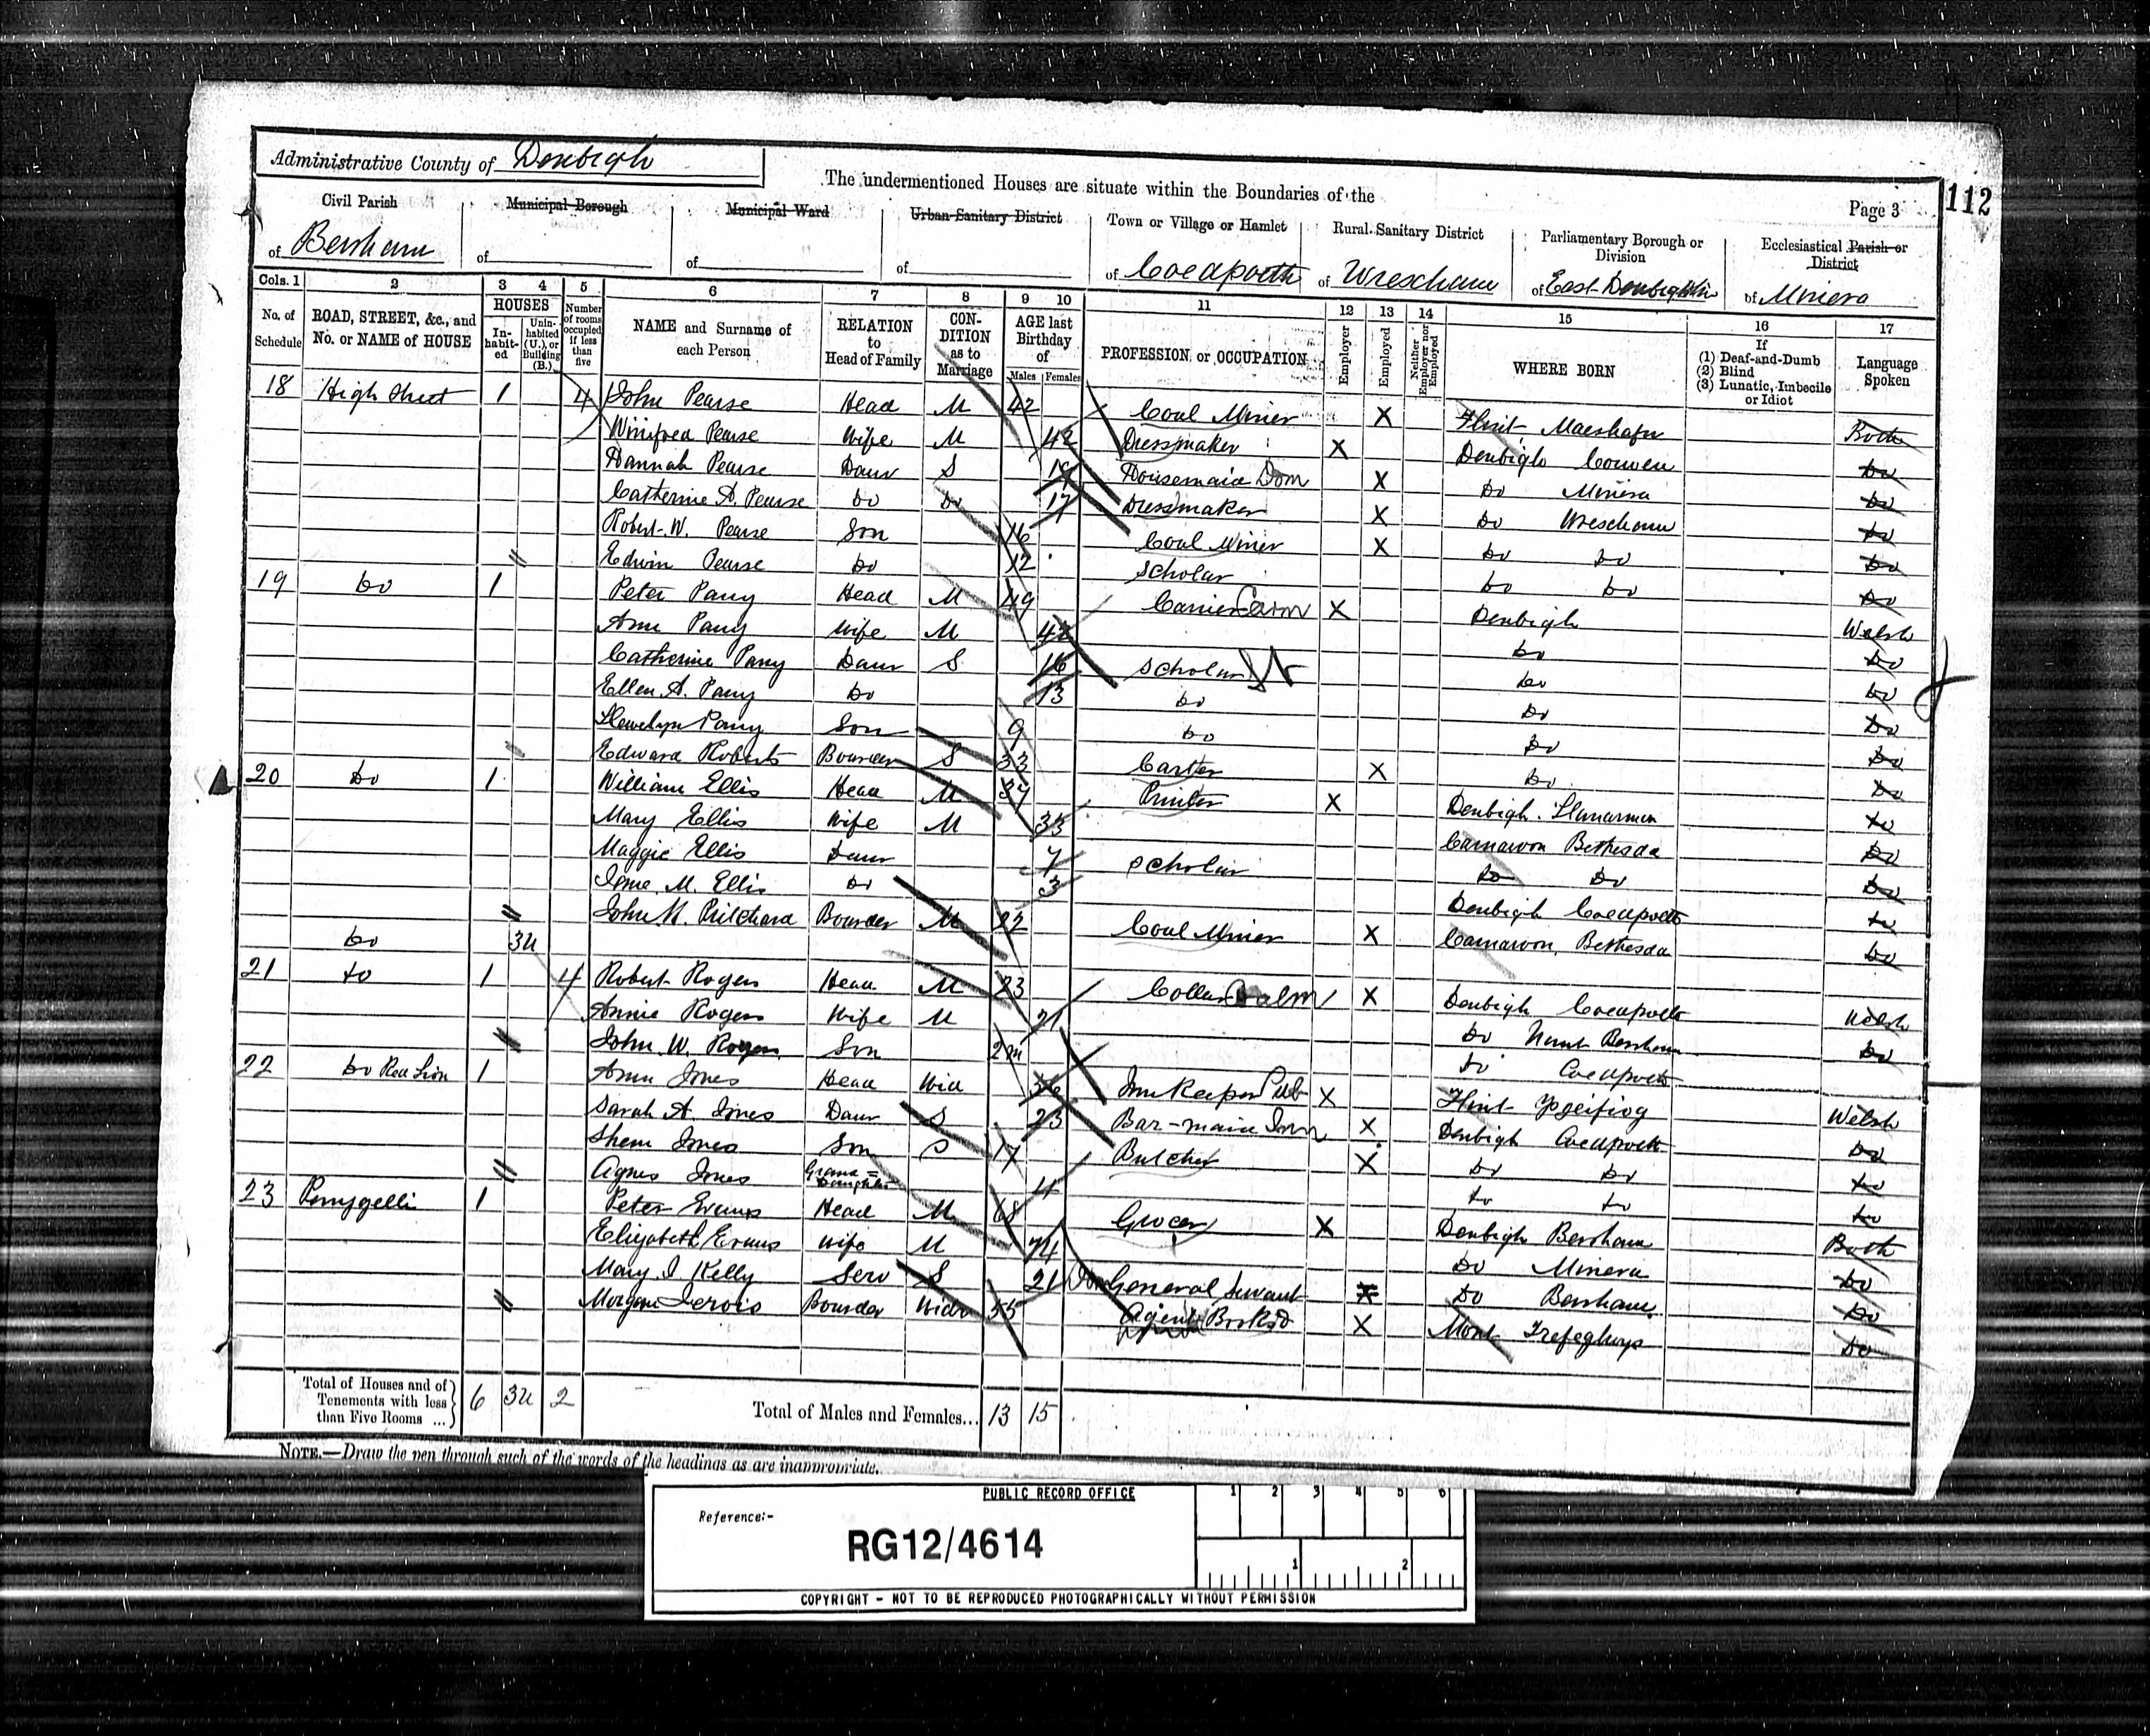 Administrative County of Denbigh
The undermentioned Houses are situate within the Boundaries of the
Page 3
112
Civil Parish
Municipal Borough
Municipal Ward
Urban Sanitary District
Town or Village or Hamlet
Rural Sanitary District
Parliamentary Borough or Division
Ecclesiastical Parish or District
of Bersham
of
of
of
of Coedpoeth
of Wrexham
of East Denbighshire
of Minera
Cols. 1 2 3 4 5 6 7 8 9 10 11 12 13 14 15 16 17
No. of Schedule
ROAD, STREET, &c., and No. or NAME of HOUSE
HOUSES
Inhabited
Uninhabited (U.), or Building (B.)
Number of rooms occupied if less than five
NAME and Surname of each Person
RELATION to Head of Family
CONDITION as to Marriage
AGE last Birthday of
Males Females
PROFESSION or OCCUPATION
Employer
Employed
Neither Employer nor Employed
WHERE BORN
If
(1) Deaf-and-Dumb
(2) Blind
(3) Lunatic, Imbecile or Idiot
Language Spoken
18 High Street 1 4 John Pearse Head M 42 Coal Miner X Flint Maeshafn Both
Winifred Pearse Wife M 42 Dressmaker X Denbigh Corwen Do
Hannah Pearse Daur S 19 Housemaid Dom X Do Minera Do
Catherine A. Pearse Do Do 17 Dressmaker X Do Wrexham Do
Robert W. Pearse Son 16 Coal Miner X Do Do Do
Edwin Pearse Do 12 Scholar Do Do Do
19 Do 1 Peter Parry Head M 49 Carrier X Denbigh Welsh
Ann Parry Wife M 42 Do Do
Catherine Parry Daur S 16 Scholar Do Do
Ellen A. Parry Do 13 Do Do Do
Llewelyn Parry Son 9 Do Do Do
Edward Roberts Boarder S 33 Carter X Do Do
20 Do 1 William Ellis Head M 37 Printer X Denbigh Llanarmon Do
Mary Ellis Wife M 33 Carnarvon Bethesda Do
Maggie Ellis Daur 7 Scholar Do Do Do
Jane M. Ellis Do 3 Denbigh Coedpoeth Do
John H. Pritchard Boarder M 22 Coal Miner X Carnarvon Bethesda Do
Do 3U
21 Do 1 4 Robert Rogers Head M 23 X Denbigh Coedpoeth Welsh
Annie Rogers Wife M 21 Do Bersham Do
John W. Rogers Son 2m Do Coedpoeth
22 Do Red Lion 1 Ann Jones Head Wid Inn Keeper Pub X Flint Ysgeifiog Welsh
Sarah A. Jones Daur S 23 Bar-maid Inn X Denbigh Coedpoeth Do
Shem Jones Son S 17 Butcher X Do Do Do
Agnes Jones Grand=Daughter 4 Do Do Do
23 Penygelli 1 Peter Evans Head M 68 Grocer X Denbigh Bersham Both
Elizabeth Evans Wife M 74 Do Minera Do
Mary J Kelly Serv S 21 General Servant X Do Bersham Do
Morgan Jervis Boarder Widr 55 Agent X Mont Trefeglwys Do
Total of Houses and of Tenements with less than Five Rooms ... 6 3U 2
Total of Males and Females... 13 15
NOTE.—Draw the pen through such of the words of the headings as are inappropriate.
PUBLIC RECORD OFFICE
Reference:-
RG12/4614
1 2 3 4 5 6
1 2
COPYRIGHT - NOT TO BE REPRODUCED PHOTOGRAPHICALLY WITHOUT PERMISSION